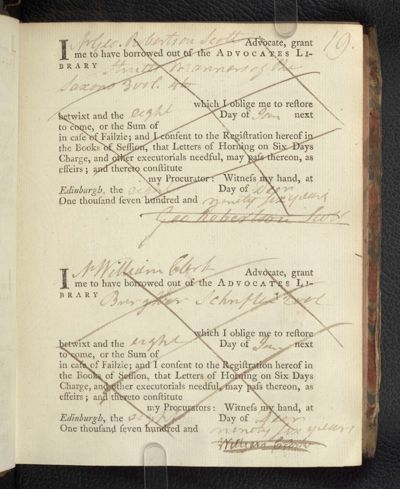 19.
I Mr Geo. Robertson Scott Advocate, grant
me to have borrowed out of the ADVOCATES LI-
BRARY Strutts Manners of the
Saxons 3 vol. 4to
which I oblige me to reſtore
betwixt and the eight Day of Jan next
to come, or the Sum of
in caſe of Failzie; and I conſent to the Regiſtration hereof in
the Books of Seſſion, that Letters of Horning on Six Days
Charge, and other executorials needful, may paſs thereon, as
effeirs; and thereto conſtitute
my Procurator: Witneſs my hand, at
Edinburgh, the eight Day of Decr
One thouſand ſeven hundred and ninety six years
Geo Robertson Scott
I Mr William Clerk Advocate, grant
me to have borrowed out of the ADVOCATES LI-
BRARY vol
which I oblige me to reſtore
betwixt and the eight Day of Jan next
to come, or the Sum of
in caſe of Failzie; and I conſent to the Regiſtration hereof in
the Books of Seſſion, that Letters of Horning on Six Days
Charge, and other executorials needful, may paſs thereon, as
effeirs; and thereto conſtitute
my Procurators: Witneſs my hand, at
Edinburgh, the eight Day of Decr
One thouſand ſeven hundred and ninety six years
William Clerk